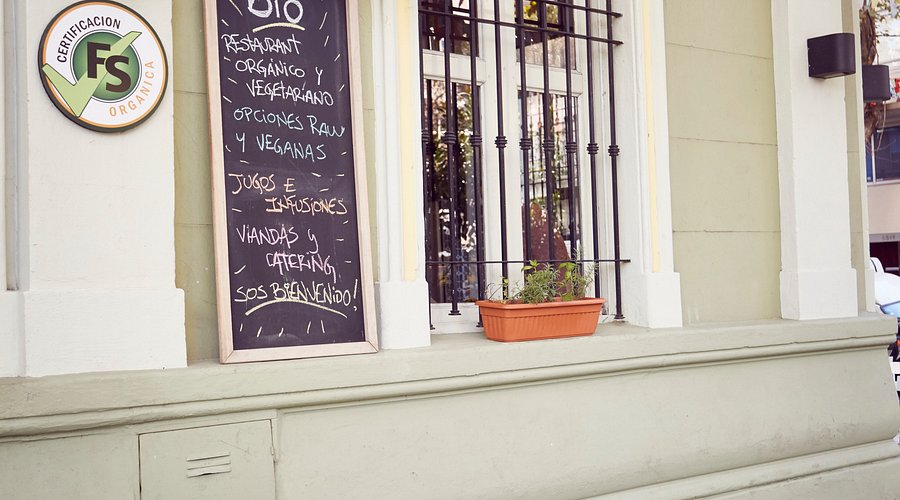 CERTIFICACION
FS
ORGÁNICA
BIO
RESTAURANT
ORGÁNICO Y
VEGETARIANO
OPCIONES RAW
Y VEGANAS
JUGOS E
INFUSIONES
VIANDAS y
CATERING,
SOS BIENVENIDO!